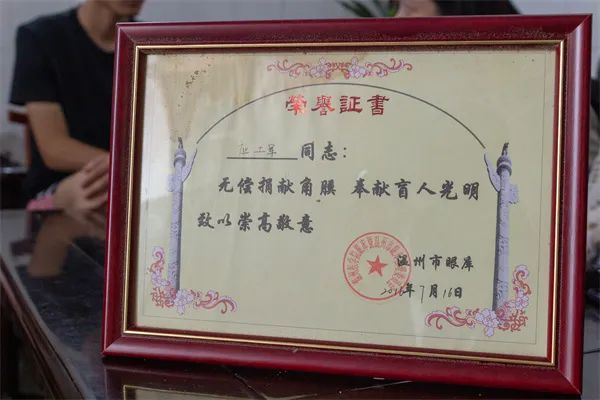 榮譽証書
同志：
无偿捐献角膜 奉献盲人光明
致以崇高敬意
温州市眼库
7月16日